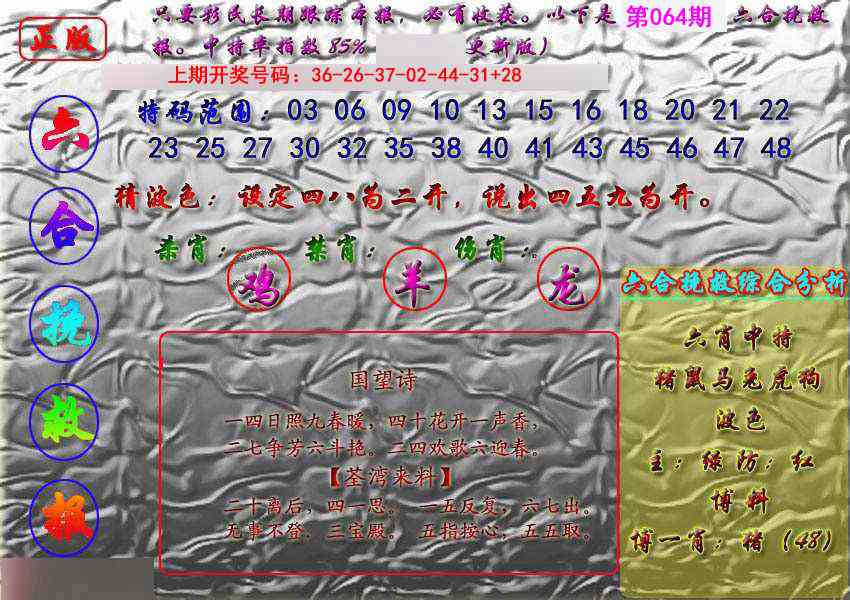 正版
只要彩民长期跟踪本报，必有收获。以下是 第064期 六合挽救
报。中特率指数85% 更新版）
上期开奖号码：36-26-37-02-44-31+28
特码范围：03 06 09 10 13 15 16 18 20 21 22
23 25 27 30 32 35 38 40 41 43 45 46 47 48
猜波色：设定四八为二开，说出四五九为开。
杀肖：鸡 禁肖：羊 伤肖：龙
六
合
挽
救
报
国望诗
一四日照九春暖，四十花开一声香，
二七争芳六斗艳。二四欢歌六迎春。
【荃湾来料】
二十离后，四一思。 一五反复，六七出。
无事不登：三宝殿。 五指按心，五五取。
六合挽救综合分析
六肖中特
猪鼠马兔虎狗
波色
主：绿防：红
博料
博一肖：猪（48）